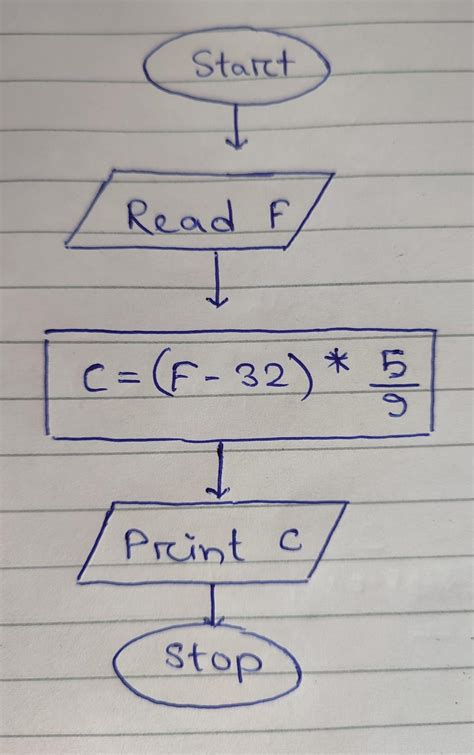 Start
Read F
C = (F - 32) * 5/9
Print C
Stop